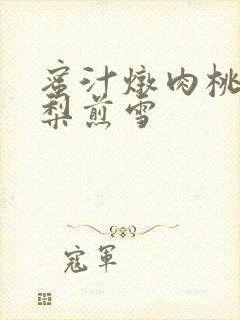 蜜汁燉肉桃
梨煎雪
寇軍